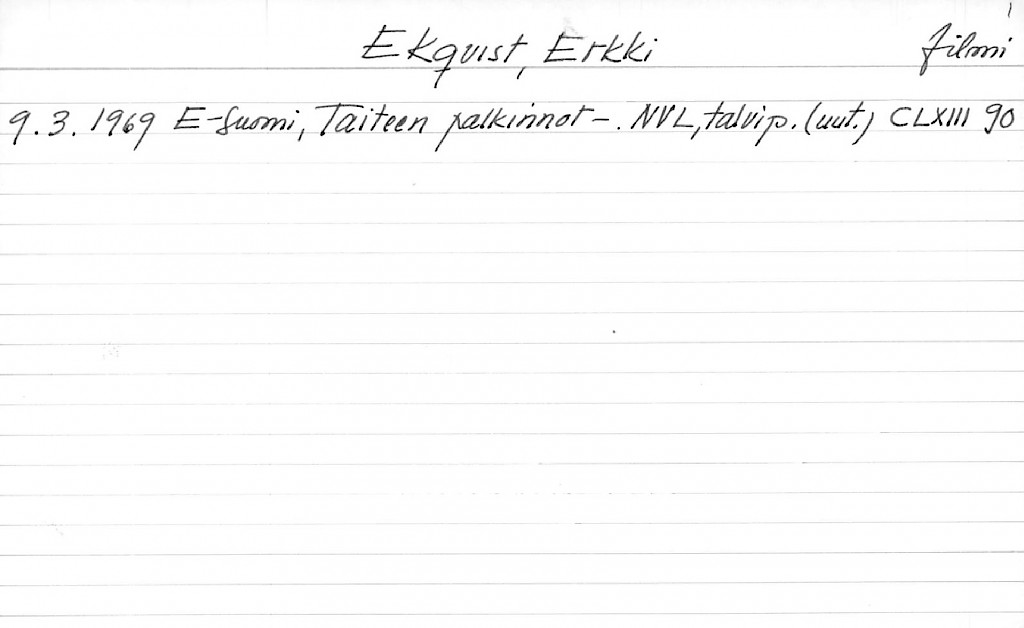 1
Ekqvist, Erkki filmi
9.3.1969 E-Suomi, Taiteen palkinnot-. NVL, talvip. (uut.) CLXIII 90